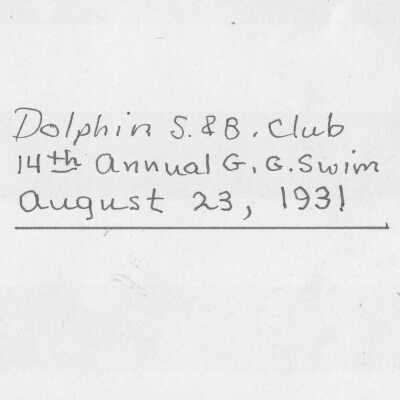 Dolphin S. & B. Club
14th Annual G. G. Swim
August 23, 1931